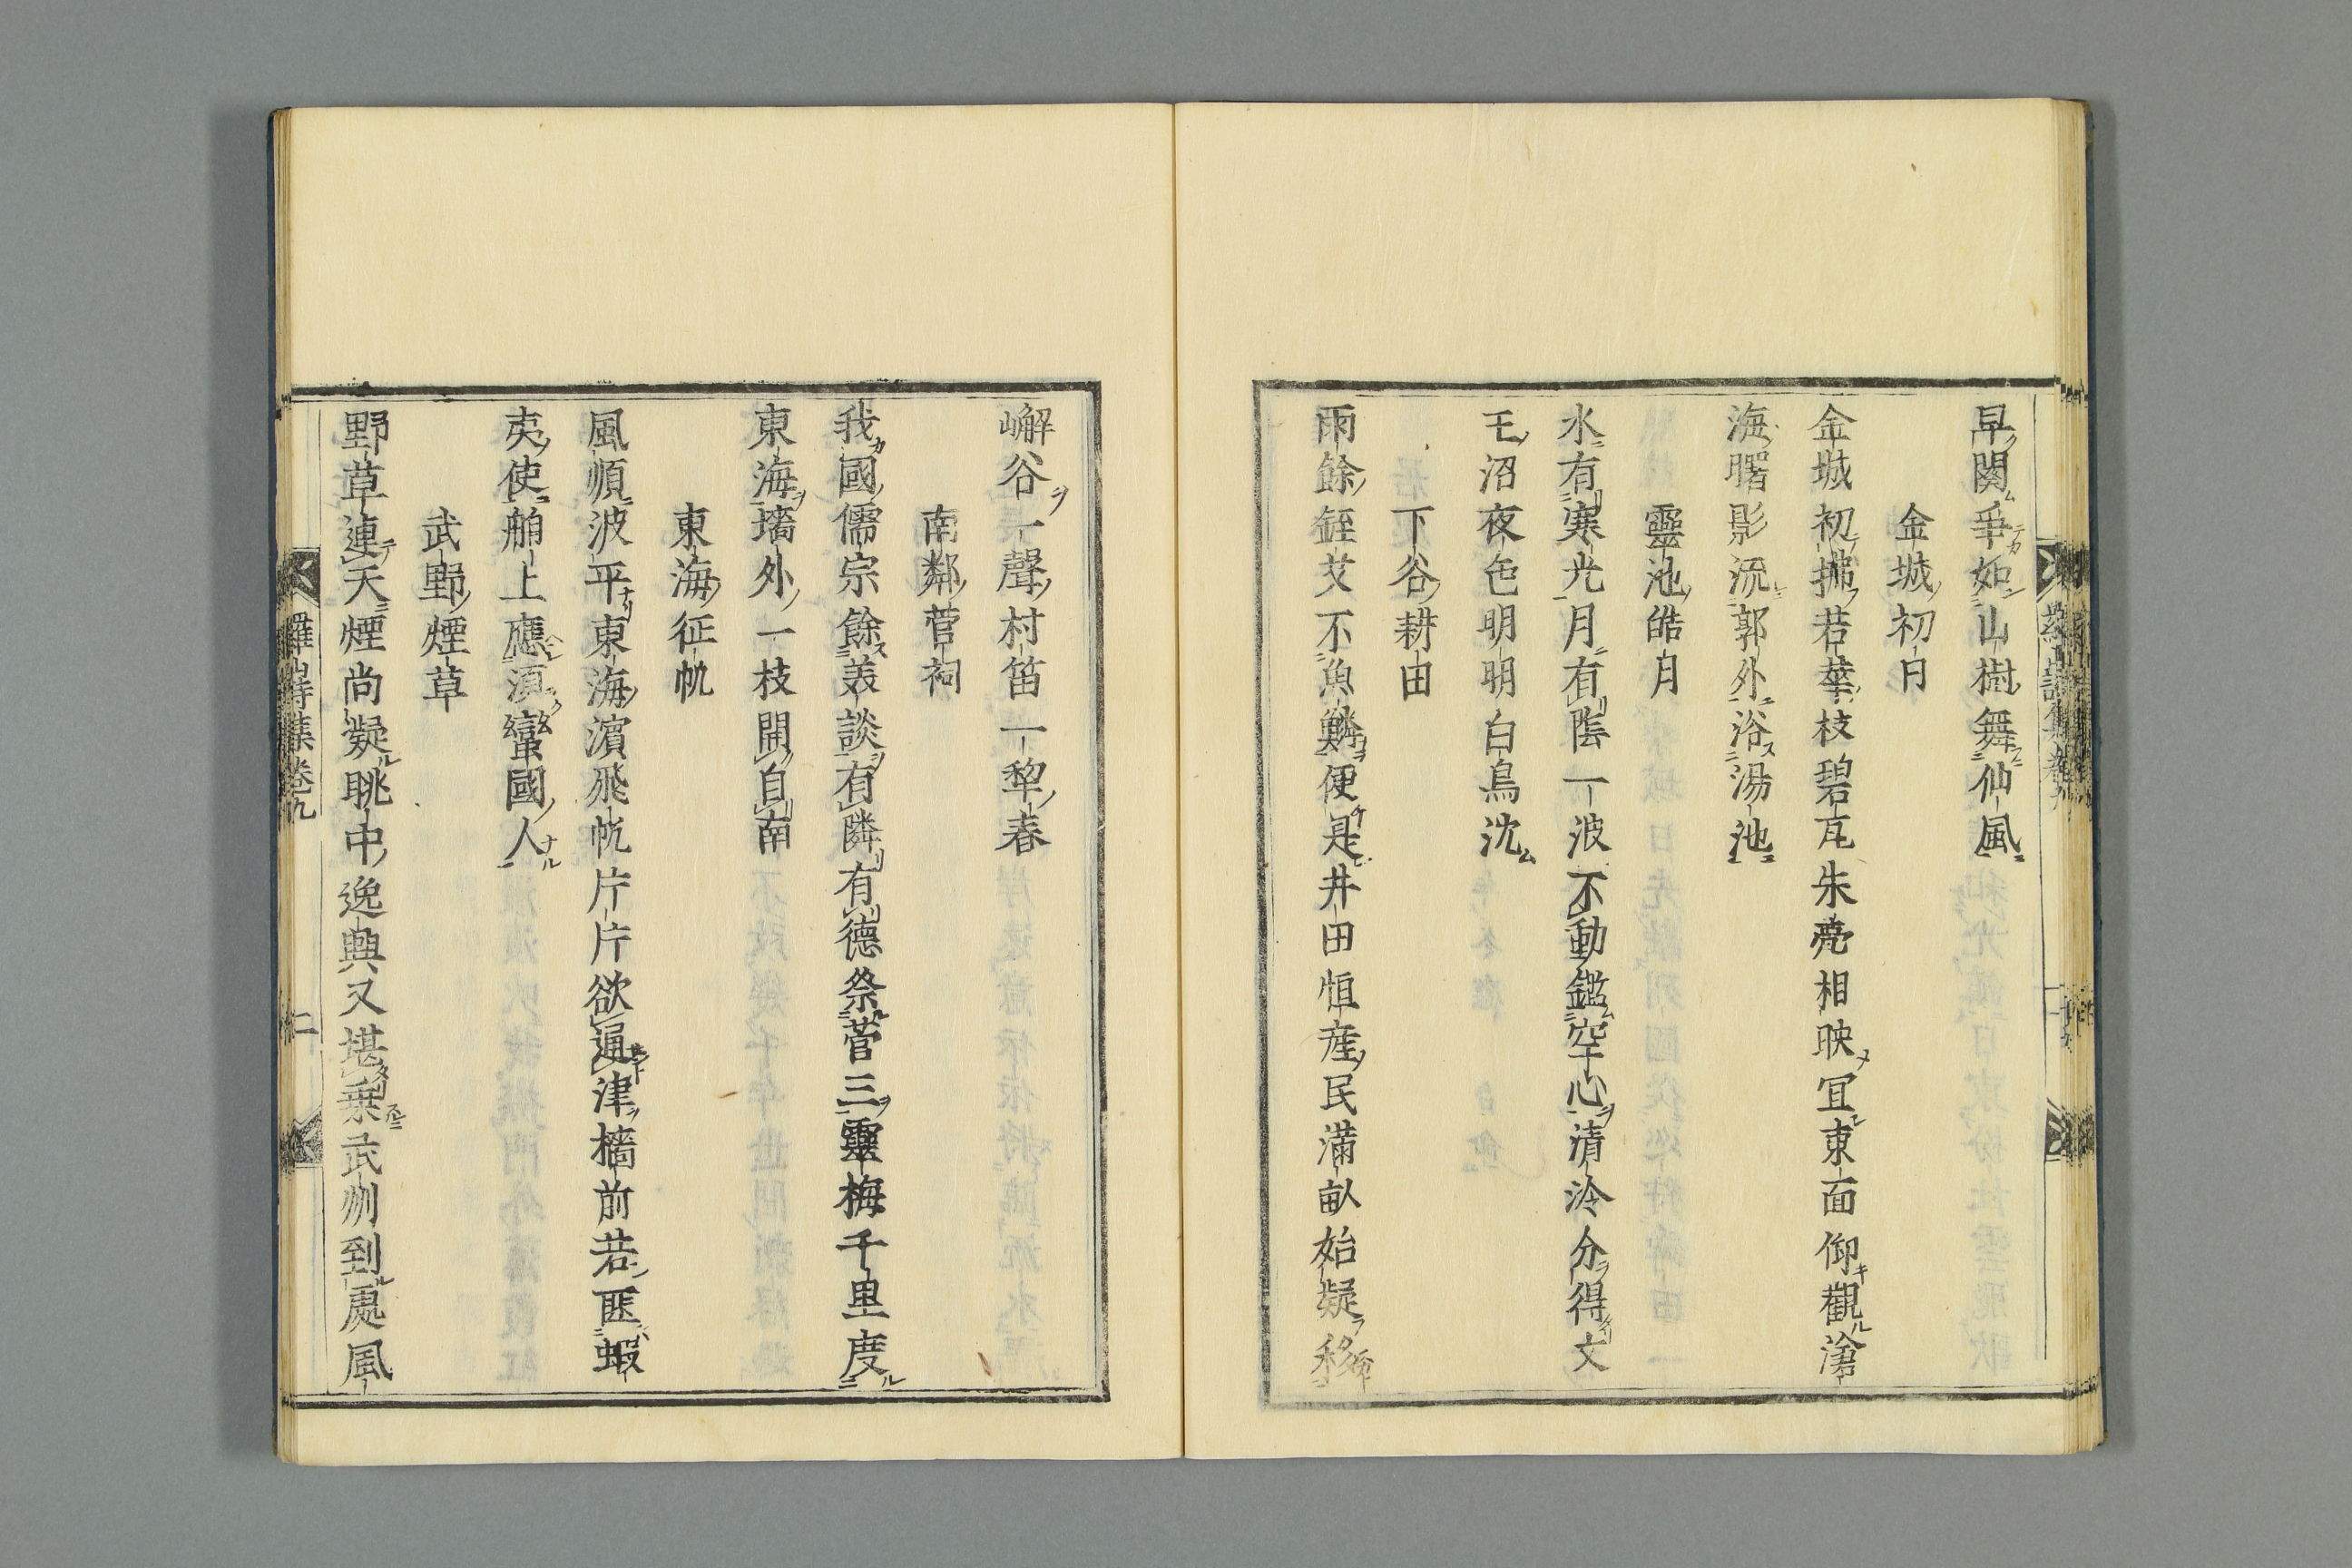 早関爭如山樹舞仙風
金城初日
金城初拂若華枝碧瓦朱甍相映冝東面仰觀滄
海曙影流郭外浴湯池
靈池皓月
水有寒光月有陰一波不動鑑空心清泠分得文
王沼夜色明明白鳥沈
下谷耕田
雨餘銍艾不魚鱗便是井田恒産民満畝始疑移
嶰谷一聲村笛一犂春
南鄰菅祠
我國儒宗餘美談有隣有德祭菅三靈梅千里度
東海墻外一枝開自南
東海征帆
風順波平東海濵飛帆片片欲逼津檣前若匪蝦
夷使舶上應須蠻國人
武野煙草
野草連天煙尚凝眺中逸興又堪乗武州到處風
羅山詩集卷九
二